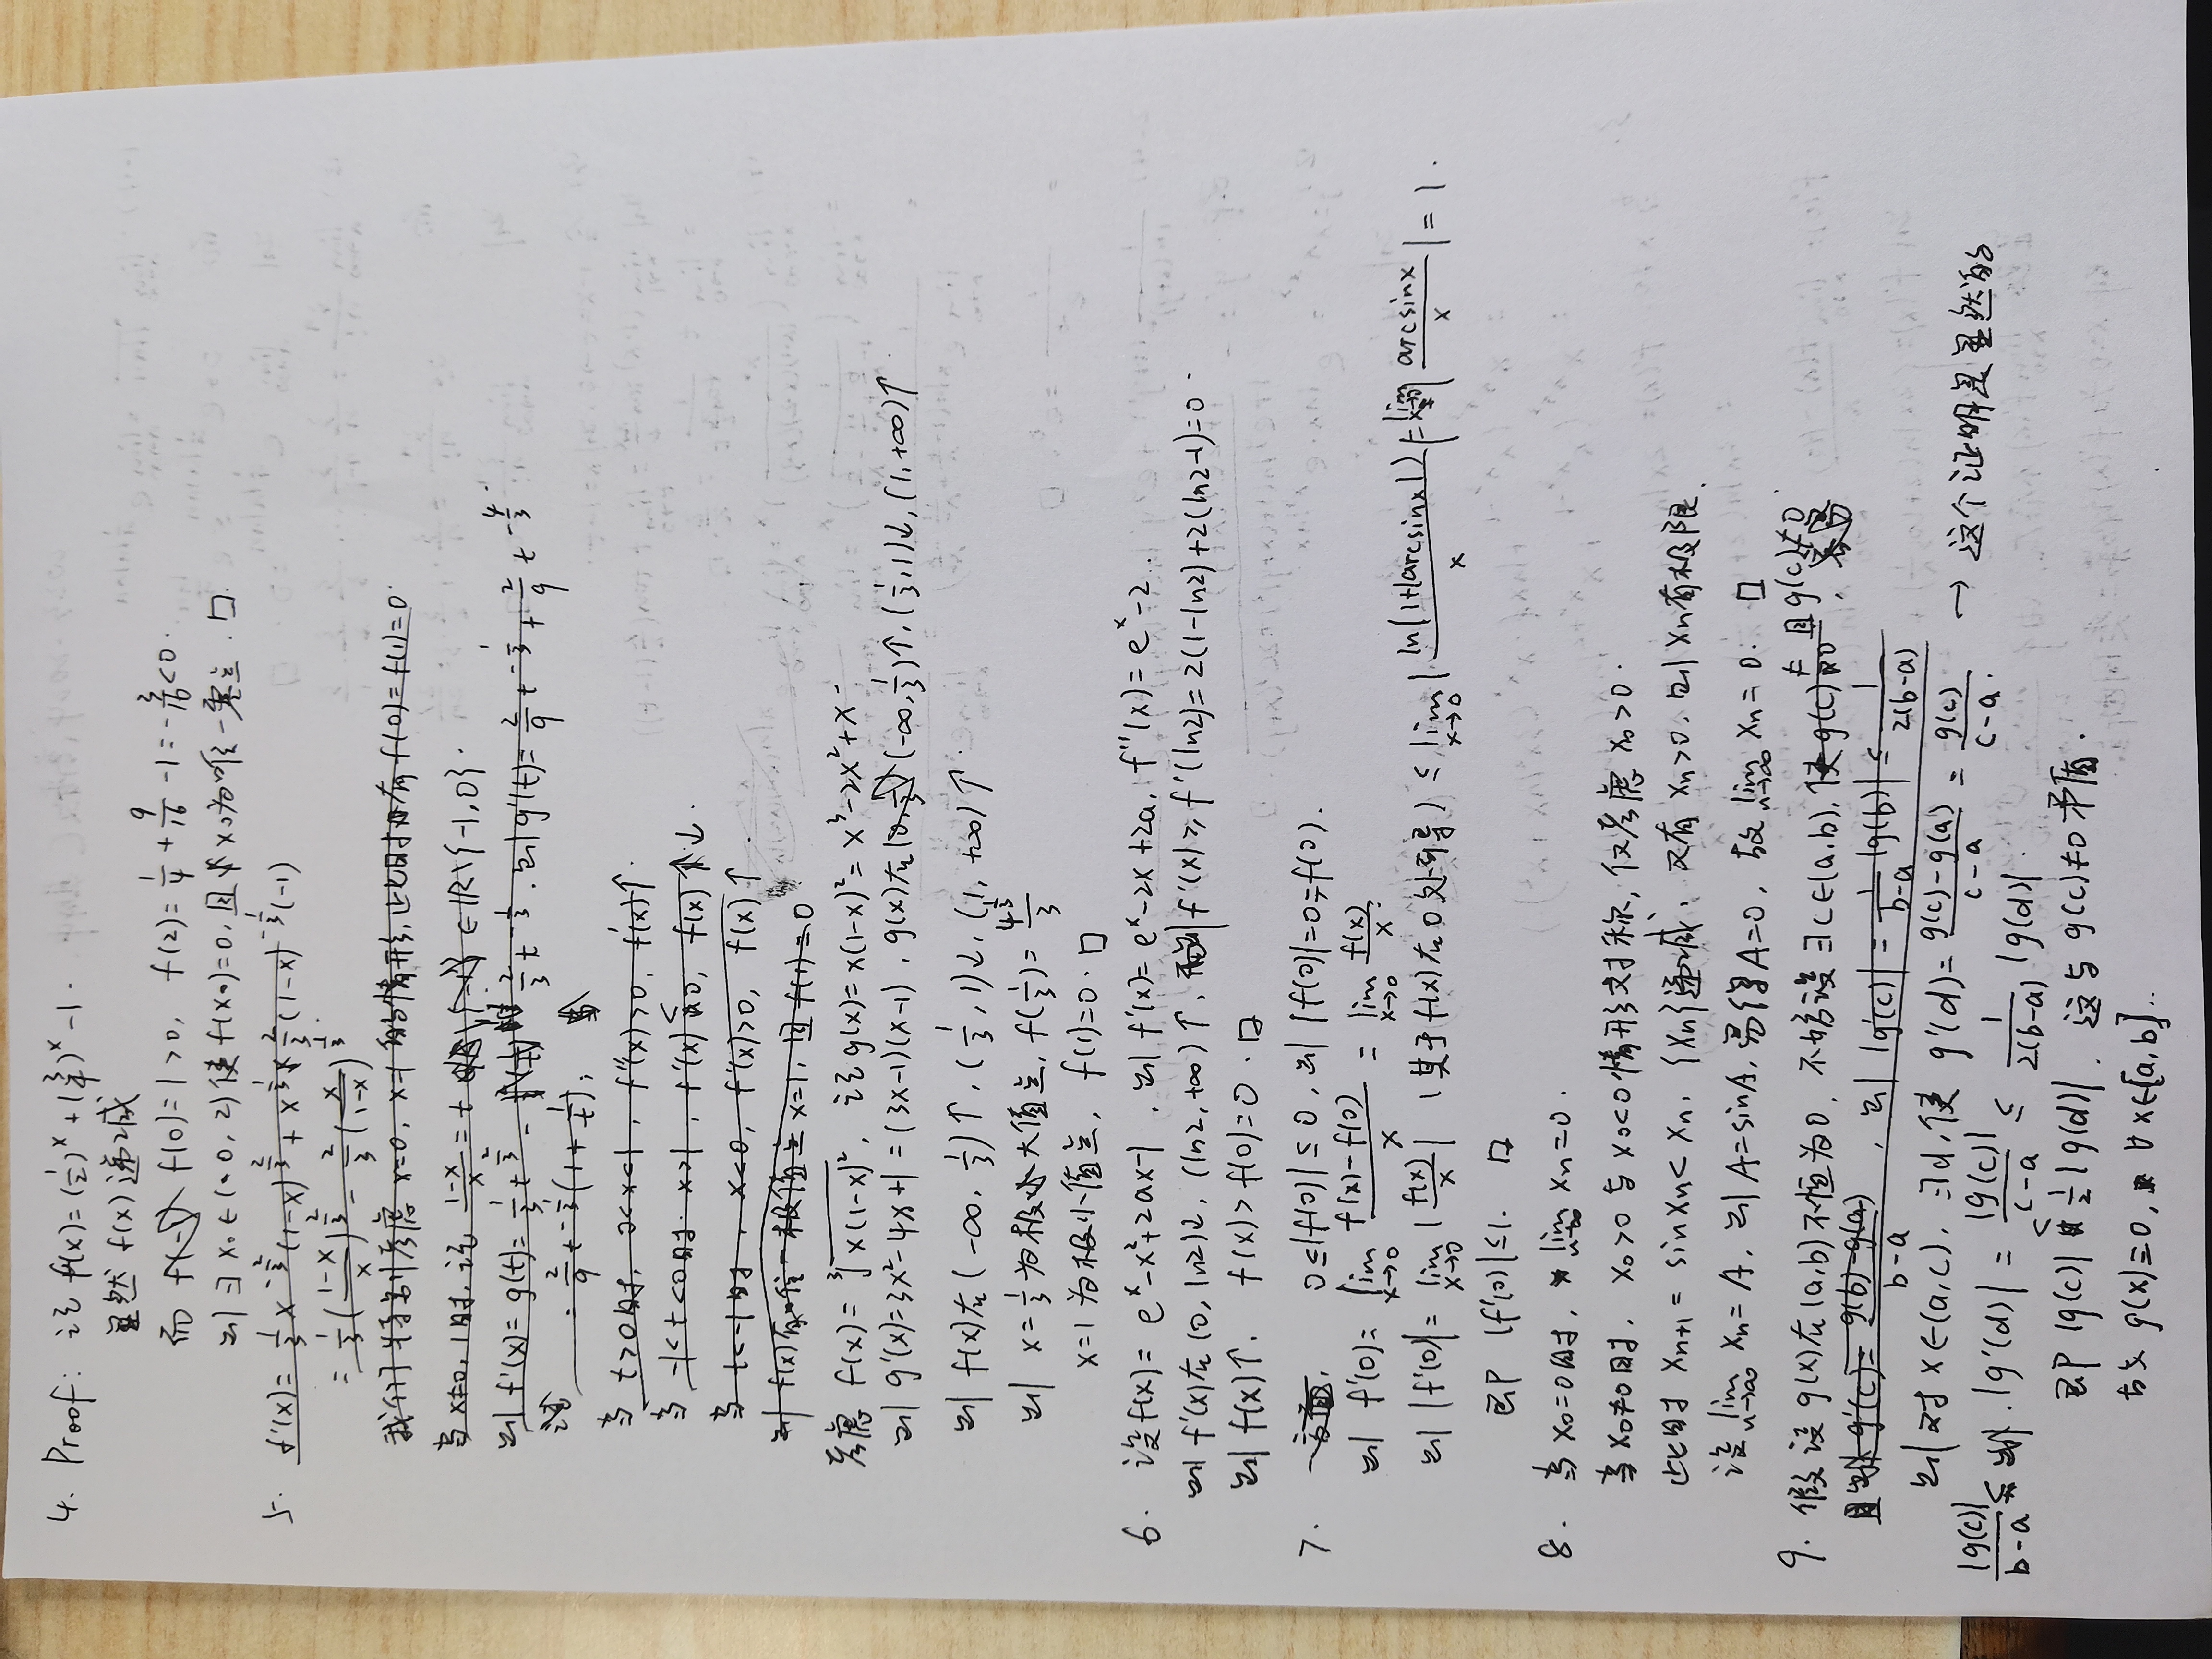 4. Proof: 记 f(x)=(1/2)^x+(3/4)^x-1.
显然 f(x) 递减
而 f(0)=1>0, f(2)=1/4+9/16-1=-3/16<0.
则 ∃ x₀∈(0,2) 使 f(x₀)=0, 且 x₀为唯一零点. □
5. f'(x)=1/3 x^{-2/3}(1-x)^{2/3}+x^{1/3}×2/3(1-x)^{-1/3}(-1)
=1/3((1-x)/x)^{2/3}-2/3(x/(1-x))^{1/3}.
我们特别考虑 x=0, x=1 的情形, 此时有 f(0)=f(1)=0.
当 x≠0,1时, 记 (1-x)/x=t ∈ℝ\{-1,0}.
则 f'(x)=g(t)=1/3 t^{2/3}-2/3 t^{-1/3}. 则 g'(t)=2/9 t^{-1/3}+2/9 t^{-4/3}
=2/9 t^{-1/3}(1+1/t),
当 t>0时, 0<x<1, f''(x)>0, f'(x)↑.
当 -1<t<0时. x>1, f'(x)<0, f(x)↓.
当 t<-1时, x<0, f'(x)>0, f(x)↑.
则 f(x)有唯一极值点 x=1, 且 f(1)=0
考虑 f(x)=∛(x(1-x)²), 记 g(x)=x(1-x)²=x³-2x²+x
则 g'(x)=3x²-4x+1=(3x-1)(x-1), g(x)在(-∞,1/3)↑, (1/3,1)↓, (1,+∞)↑.
则 f(x)在(-∞,1/3)↑, (1/3,1)↓, (1,+∞)↑.
则 x=1/3 为极大值点, f(1/3)=4^{1/3}/3
x=1 为极小值点, f(1)=0. □
6. 设f(x)=e^x-x²+2ax-1, 则 f'(x)=e^x-2x+2a, f''(x)=e^x-2.
则 f'(x)在(0,ln2)↓, (ln2,+∞)↑, 则 f'(x)≥f'(ln2)=2(1-ln2)+2(ln2-1)=0.
则 f(x)↑. f(x)>f(0)=0. □
7. 一方面, 0≤|f(0)|≤0, 则 |f(0)|=0=f(0).
则 f'(0)=lim_{x→0} (f(x)-f(0))/x = lim_{x→0} f(x)/x.
则 |f'(0)|=lim_{x→0}|f(x)/x| (基于f(x)在0处可导) ≤lim_{x→0}|ln(1+|arcsinx|)/x|=lim_{x→0}|arcsinx/x|=1.
即 |f'(0)|≤1. □
8. 当 x₀=0时, lim_{n→∞} xₙ=0.
当 x₀≠0时, x₀>0 与 x₀<0情形对称, 仅考虑 x₀>0.
此时 xₙ₊₁=sinxₙ<xₙ, {xₙ}递减, 又有 xₙ>0, 则 xₙ有极限.
设 lim_{n→∞} xₙ=A, 则 A=sinA, 易得A=0, 故 lim_{n→∞} xₙ=0. □
9. 假设 g(x)在(a,b)不恒为0, 不妨设 ∃c∈(a,b), 使 g(c)≠0 且g(c)≠0.
且 g'(c)=(g(b)-g(a))/(b-a), 则 |g'(c)|=1/(b-a)|g(b)|≤1/(2(b-a))
则 对 x∈(a,c), ∃d, 使 g'(d)=(g(c)-g(a))/(c-a)=g(c)/(c-a). → 这个证明是显然的
|g(c)|/(b-a)≤ |g'(d)|=|g(c)|/(c-a)≤1/(2(b-a))|g(d)|.
即 |g(c)|<1/2|g(d)|, 这与 g(c)≠0 矛盾.
故 g(x)≡0, ∀x∈[a,b].